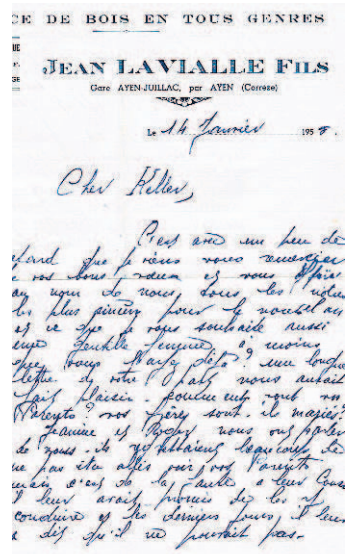 CE DE BOIS EN TOUS GENRES
JEAN LAVIALLE FILS
Gare AYEN-JUILLAC, par AYEN (Corrèze)
Le 14 Janvier 195
Cher Keller,
C'est avec un peu de
retard que je viens vous remercier
de vos bons vœux et vous
au nom de nous tous les nôtres
les plus sincères pour le nouvel an
et ce que je vous souhaite aussi
une gentille femme, à moins
que vous l'ayez déjà ? une longue
lettre de votre part nous aurait
fait plaisir. comment vont vos
Parents ? vos frères sont-ils mariés ?
Jeannine et Roger nous ont parlé
de vous. ils beaucoup de
ne pas être allés voir vos Parents
mais c'est de la faute à leur
il leur avait promis de les y
conduire et les derniers jours il leur
a dit qu'il ne pouvait pas.